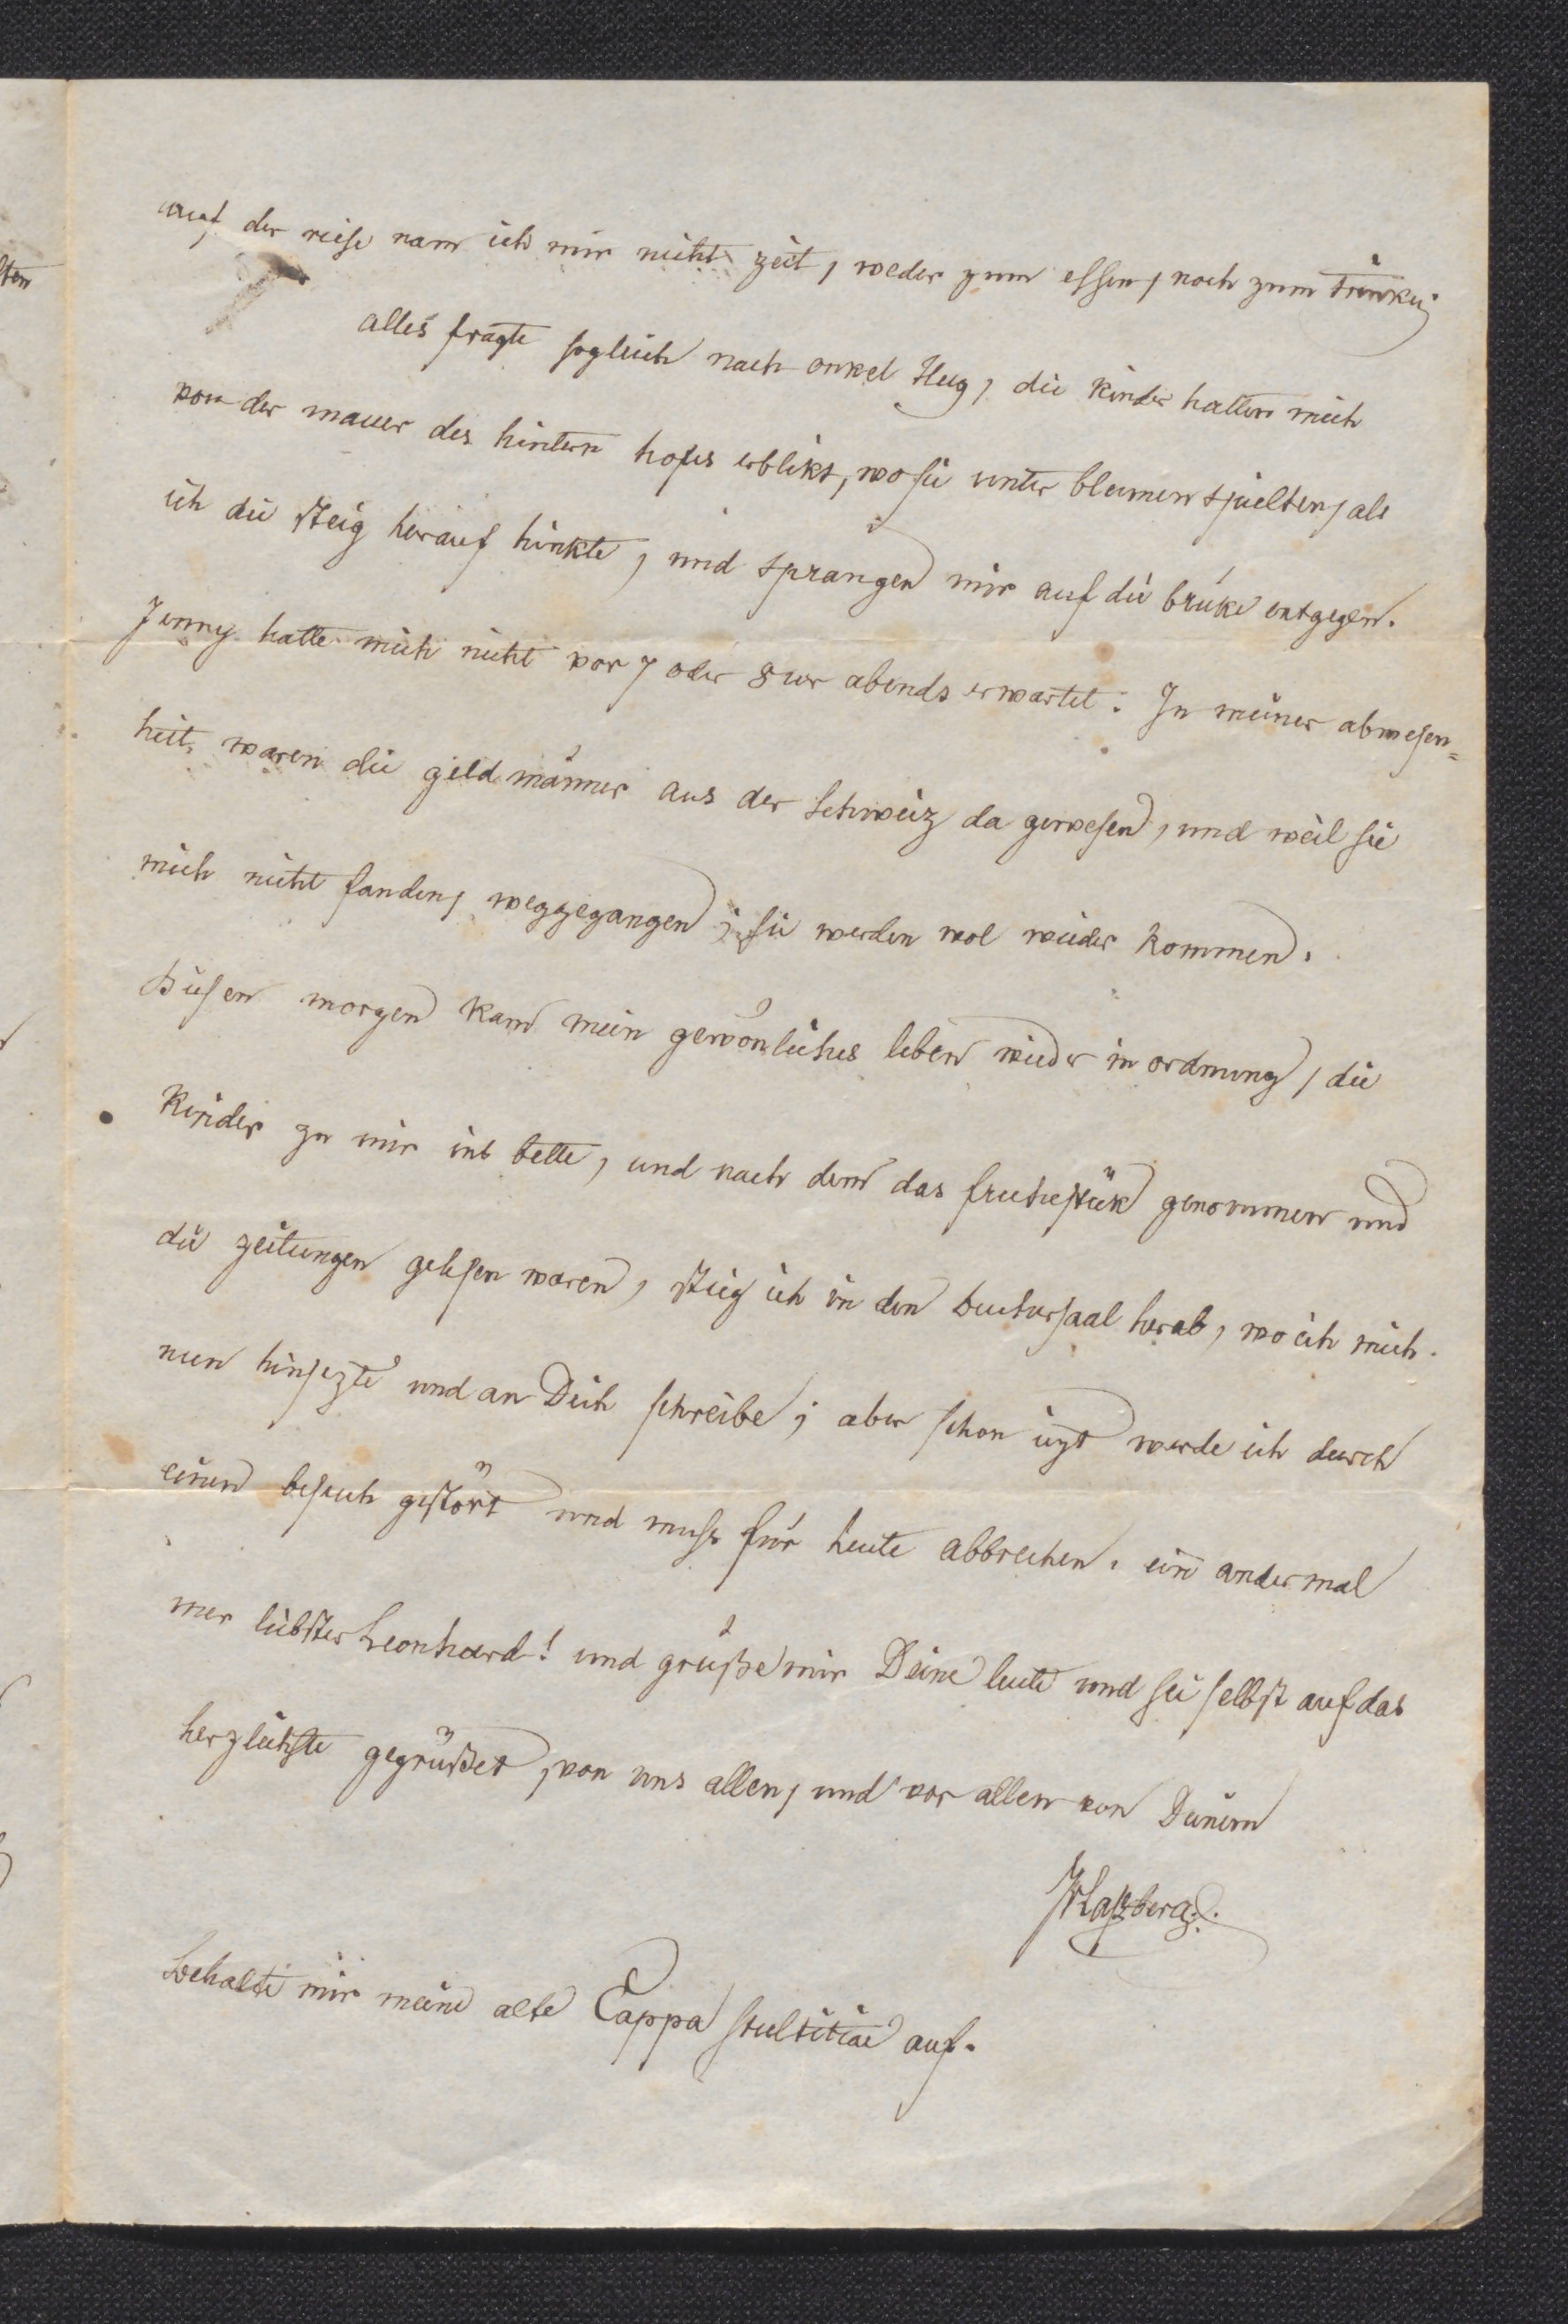 auf der reise nam ich mir nicht zeit, weder zum essen, noch zum trinken;
alles fragte sogleich nach onkel Hug, die kinder hatten mich
von der mauer des hintern hofes erblikt, wo sie unter blumen spielten, als
ich die steig herauf hinkte, und sprangen mir auf die brüke entgegen.
Jenny hatte mich nicht vor 7 oder 8 ur abends erwartet. In meiner abwesen=
heit, waren die geldmänner aus der Schweiz da gewesen, und weil sie
mich nicht fanden, weggegangen; sie werden wol wieder kommen.
Diesen morgen kam mein gewönliches leben wieder in ordnung, die
Kinder zu mir ins bette, und nach dem das fruehestük genommen und
die zeitungen gelesen waren, stieg ich in den buchersaal herab, wo ich mich
nun hinsezte und an Dich schreibe; aber schon iezt werde ich durch
einen besuch gestört und muss für heute abbrechen. ein andermal
mer liebster Leonhard! und grüße mir Deine leute und sei selbst auf das
herzlichste gegrüßet, von uns allen, und vor allen von Deinem
JvLaßberg.
behalte mir meine alte Cappa stultitiae auf.